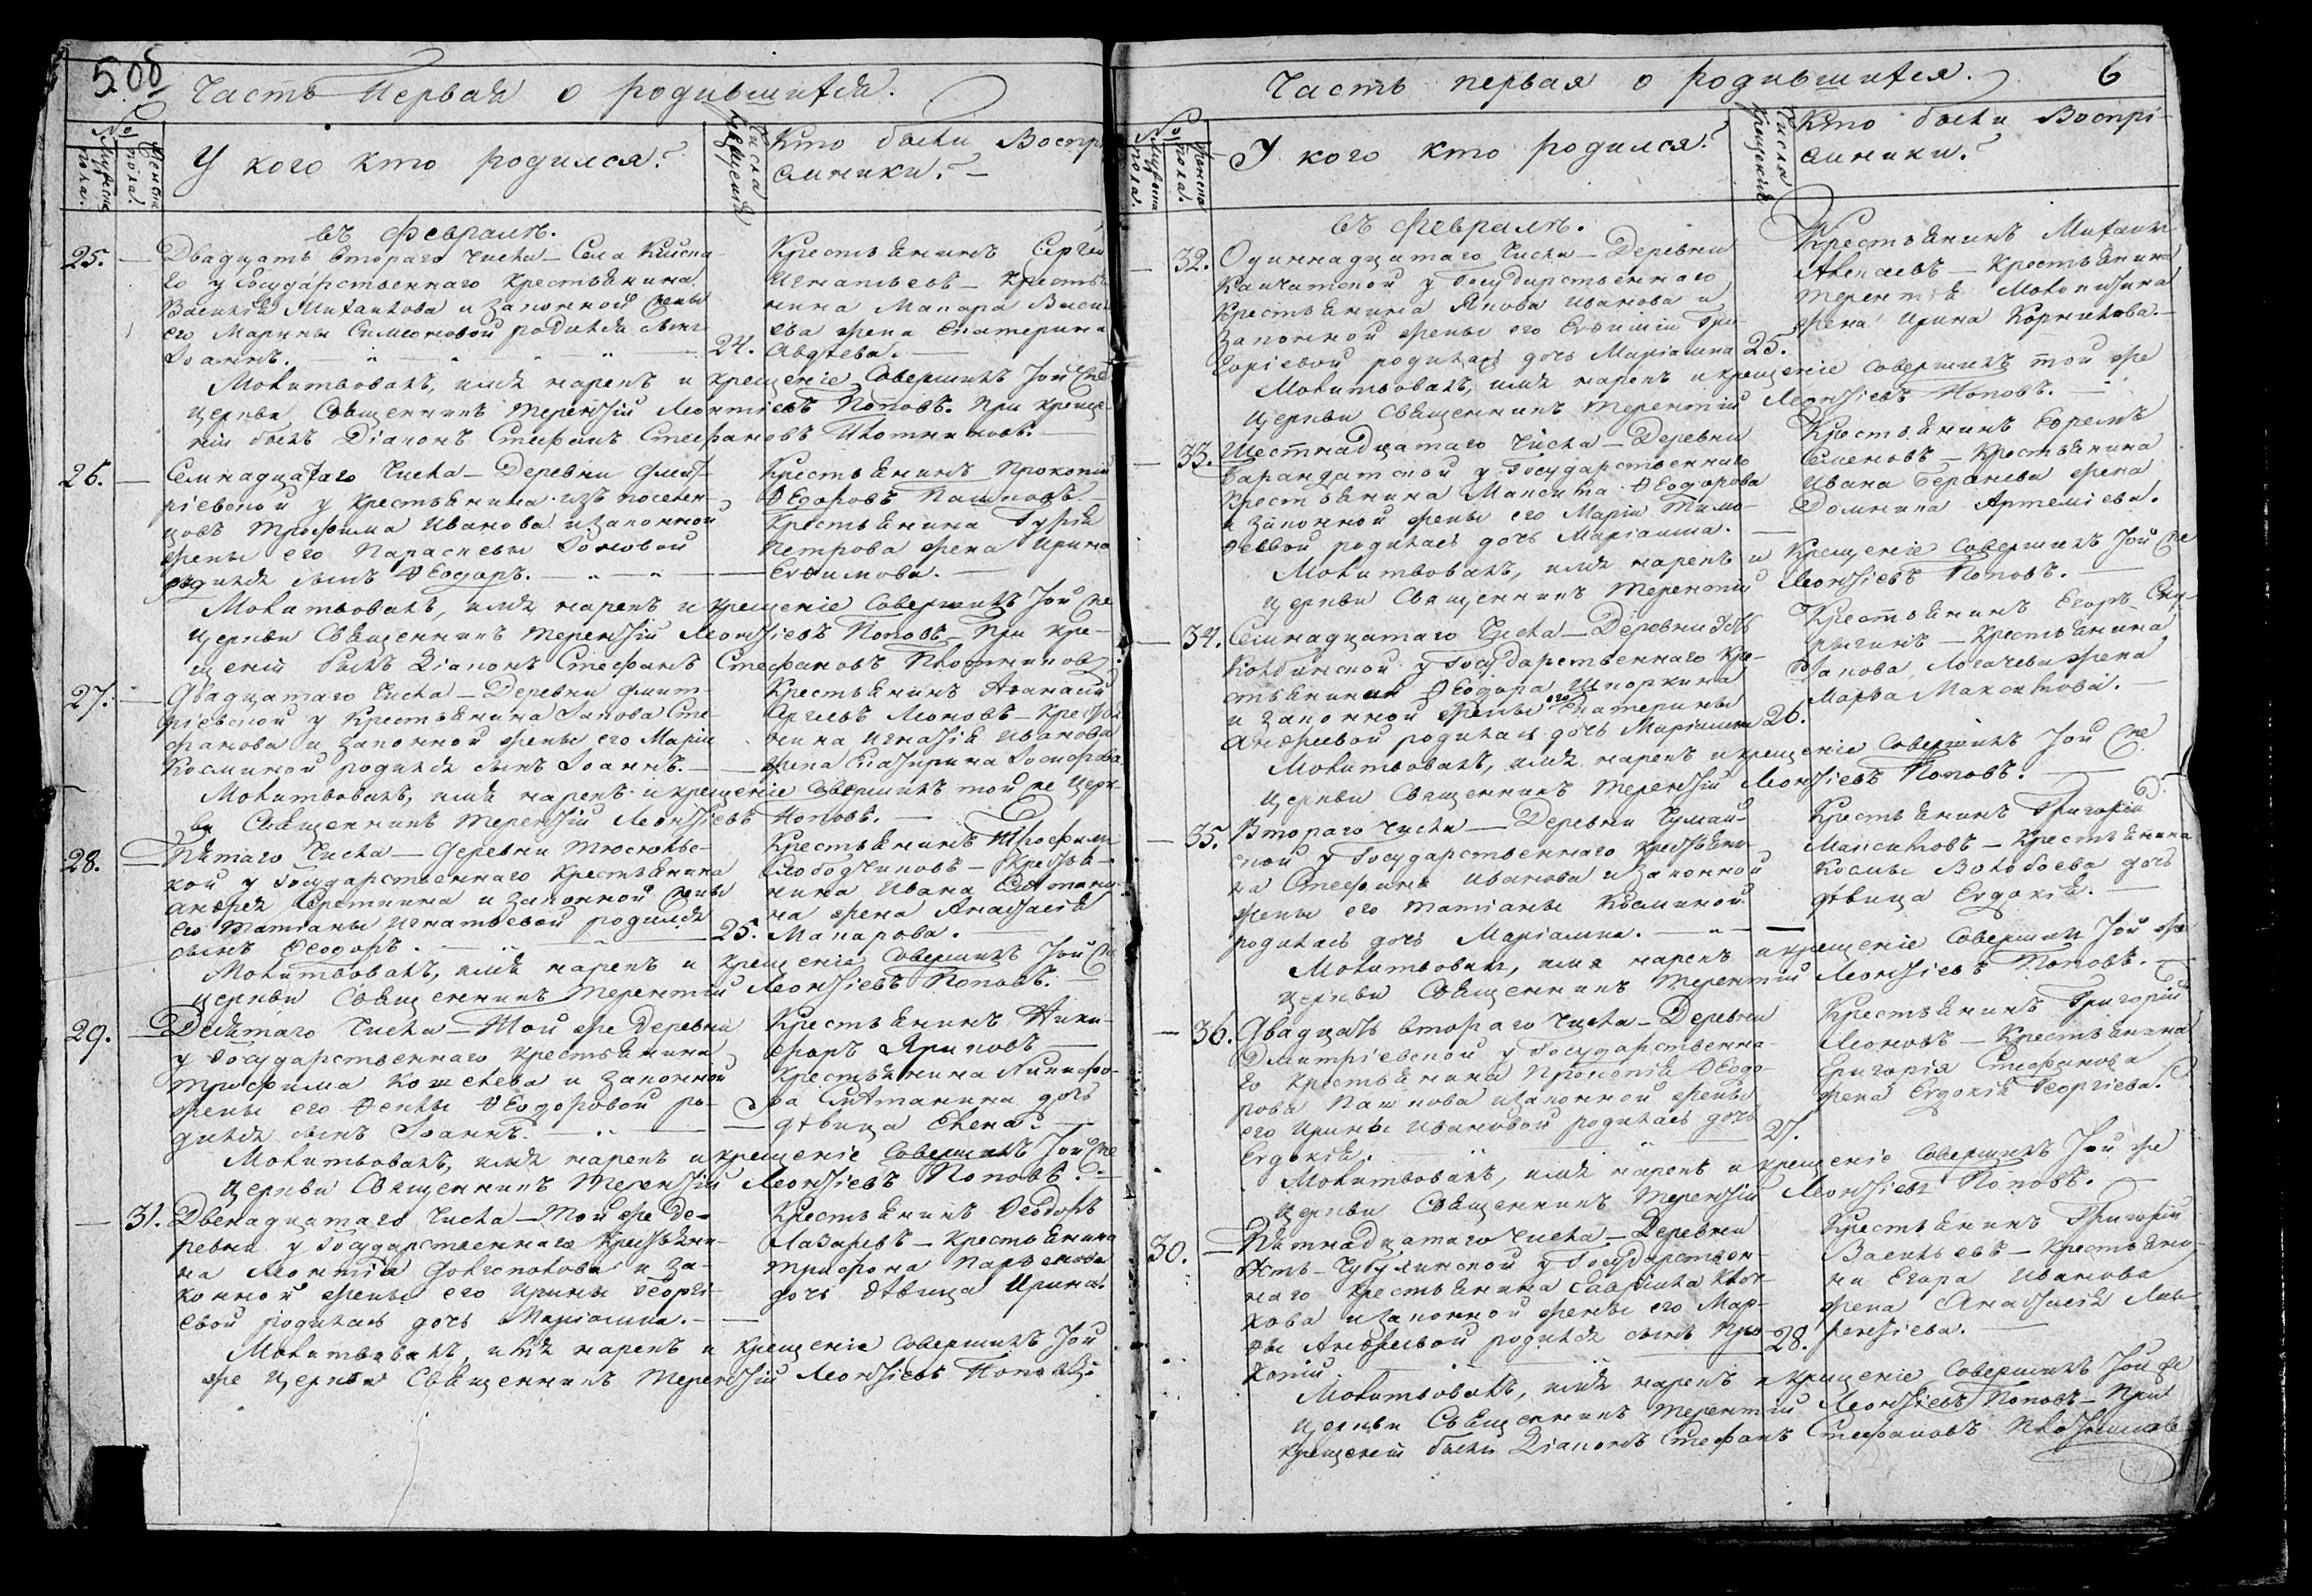 5 об
Часть Первая о родившихся.
№
Мужеска пола.
Женска пола.
У кого кто родился?
Числа крещения
Кто были Воспрі-
емники? —
въ Февралѣ.
25. — Двадцать втораго числа — Села
го у Государственнаго крестьянина
Василія Михаилова и законной жены
его Марины Симеоновой родился сынъ
Іоаннъ. — 24.
Крестьянинъ Сергій
Игнатьевъ — Крестья-
нина Макара Васи
ева жена Екатерина
Авдѣева. —
Молитвовалъ, имя нарекъ и крещеніе совершилъ той же
церкви Священникъ Терентій Леонтіевъ Поповъ. При креще-
ніи былъ Діаконъ Стефанъ Стефановъ Плотниковъ. —
26. — Семнадцатаго числа — Деревни Дмит-
ріевской у крестьянина изъ поселен-
цовъ Трофима Иванова и законной
жены его Параскевы Іоновой
родился сынъ Ѳеодоръ. —
Крестьянинъ Прокопій
Ѳеодоровъ Пашковъ. —
Крестьянина Гурія
Петрова жена Ирина
Евѳимова. —
Молитвовалъ, имя нарекъ и крещеніе совершилъ той же
церкви Священникъ Терентій Леонтіевъ Поповъ — При кре-
щеніи былъ Діаконъ Стефанъ Стефановъ Плотниковъ
27. — Двадцатаго числа — Деревни Дмит-
ріевской у Крестьянина Іакова Сте-
фанова и законной жены его Маріи
Косминой родился сынъ Іоаннъ. —
Крестьянинъ Аѳанасій
Леоновъ — Крестья
нина Игнатія Иванова
жена Екатерина Іосифова
Молитвовалъ, имя нарекъ и крещеніе совершилъ той же церк-
ви Священникъ Терентій Леонтіевъ Поповъ. —
28. — Пятаго числа — Деревни Тюсюльс-
кой у Государственнаго крестьянина
Андрея и законной жены
его Татіаны Игнатьевой родился
сынъ Ѳеодоръ. — 25.
Крестьянинъ Трофимъ
Слободчиковъ — Крестья-
нина Ивана
на жена Анастасія
Макарова. —
Молитвовалъ, имя нарекъ и крещеніе совершилъ той же
церкви Священникъ Терентій Леонтіевъ Поповъ. —
29. — Десятаго числа — Той же деревни
у Государственнаго крестьянина
Трофима Кошелева и законной
жены его Ѳеклы Ѳеодоровой ро-
дился сынъ Іоаннъ. —
Крестьянинъ Ники-
форъ —
Крестьянина Никифо-
ра дочь
дѣвица Елена. —
Молитвовалъ, имя нарекъ и крещеніе совершилъ той же
церкви Священникъ Терентій Леонтіевъ Поповъ. —
— 31. Двенадцатаго числа — Той же де-
ревни у Государственнаго крестьяни-
на Леонтія Долгополова и за-
конной жены его Ирины Георгі-
евой родилась дочь Маріамна. —
Крестьянинъ Ѳеодоръ
Лазаревъ — Крестьянина
Трифона Парѳенова
дочь дѣвица Ирина.
Молитвовалъ, имя нарекъ и крещеніе совершилъ той
же церкви Священникъ Терентій Леонтіевъ Поповъ.
Часть первая о родившихся. 6
№
Мужеска пола.
Женска пола.
У кого кто родился?
Числа крещенія
Кто были Воспрі-
емники?
въ Февралѣ.
— 32. Одиннадцатаго числа — Деревни
Камчатской у Государственнаго
Крестьянина Якова Иванова и
законной жены его Евѳиміи Гри-
горіевой родилась дочь Маріамна 25.
Крестьянинъ Михаилъ
Алексѣевъ — Крестьянина
Терентія
жена Ирина Корнилова. —
Молитвовалъ, имя нарекъ и крещеніе совершилъ той же
церкви Священникъ Терентій Леонтіевъ Поповъ. —
— 33. Шестнадцатаго числа — Деревни
Барандатской у Государственнаго
Крестьянина Максима Ѳеодорова
и законной жены его Маріи Тимо-
ѳеевой родилась дочь Маріамна. —
Крестьянинъ Ефремъ
Семеновъ — Крестьянина
Ивана жена
Домника Артеміева.
Молитвовалъ, имя нарекъ и крещеніе совершилъ той же
церкви Священникъ Терентій Леонтіевъ Поповъ. —
— 34. Семнадцатаго числа — Деревни Усть
Колбинской у Государственнаго кре-
стьянина Ѳеодора
и законной жены его Екатерины
Андреевой родилась дочь Маріамна 26.
Крестьянинъ Егоръ
— Крестьянина
Іакова Логачева жена
Марѳа Максимова. —
Молитвовалъ, имя нарекъ и крещеніе совершилъ той же
церкви Священникъ Терентій Леонтіевъ Поповъ. —
— 35. Втораго числа — Деревни Чумай-
ской у Государственнаго крестьяни-
на Стефана Иванова и законной
жены его Татіаны Косминой
родилась дочь Маріамна. —
Крестьянинъ Григорій
Максимовъ — Крестьянина
Космы Волобоева дочь
дѣвица Евдокія. —
Молитвовалъ, имя нарекъ и крещеніе совершилъ той же
церкви Священникъ Терентій Леонтіевъ Поповъ. —
— 36. Двадцать втораго числа — Деревни
Дмитріевской у Государственна-
го крестьянина Прокопія Ѳеодо-
рова Пашкова и законной жены
его Ирины Ивановой родилась дочь
Евдокія. 27.
Крестьянинъ Григорій
Леоновъ — Крестьянина
Григорія Стефанова
жена Евдокія Георгіева.
Молитвовалъ, имя нарекъ и крещеніе совершилъ той же
церкви Священникъ Терентій Леонтіевъ Поповъ. —
30. — Пятнадцатаго числа — Деревни
Усть-Чебулинской у Государствен-
наго крестьянина Гавріила Клоч-
кова и законной жены его Мар-
ѳы Андреевой родился сынъ Про-
копій 28.
Крестьянинъ Григорій
Васильевъ — Крестьяни-
на Егора Иванова
жена Анастасія Лав-
рентіева. —
Молитвовалъ, имя нарекъ и крещеніе совершилъ той же
церкви Священникъ Терентій Леонтіевъ Поповъ — При
крещеніи былъ Діаконъ Стефанъ Стефановъ Плотниковъ